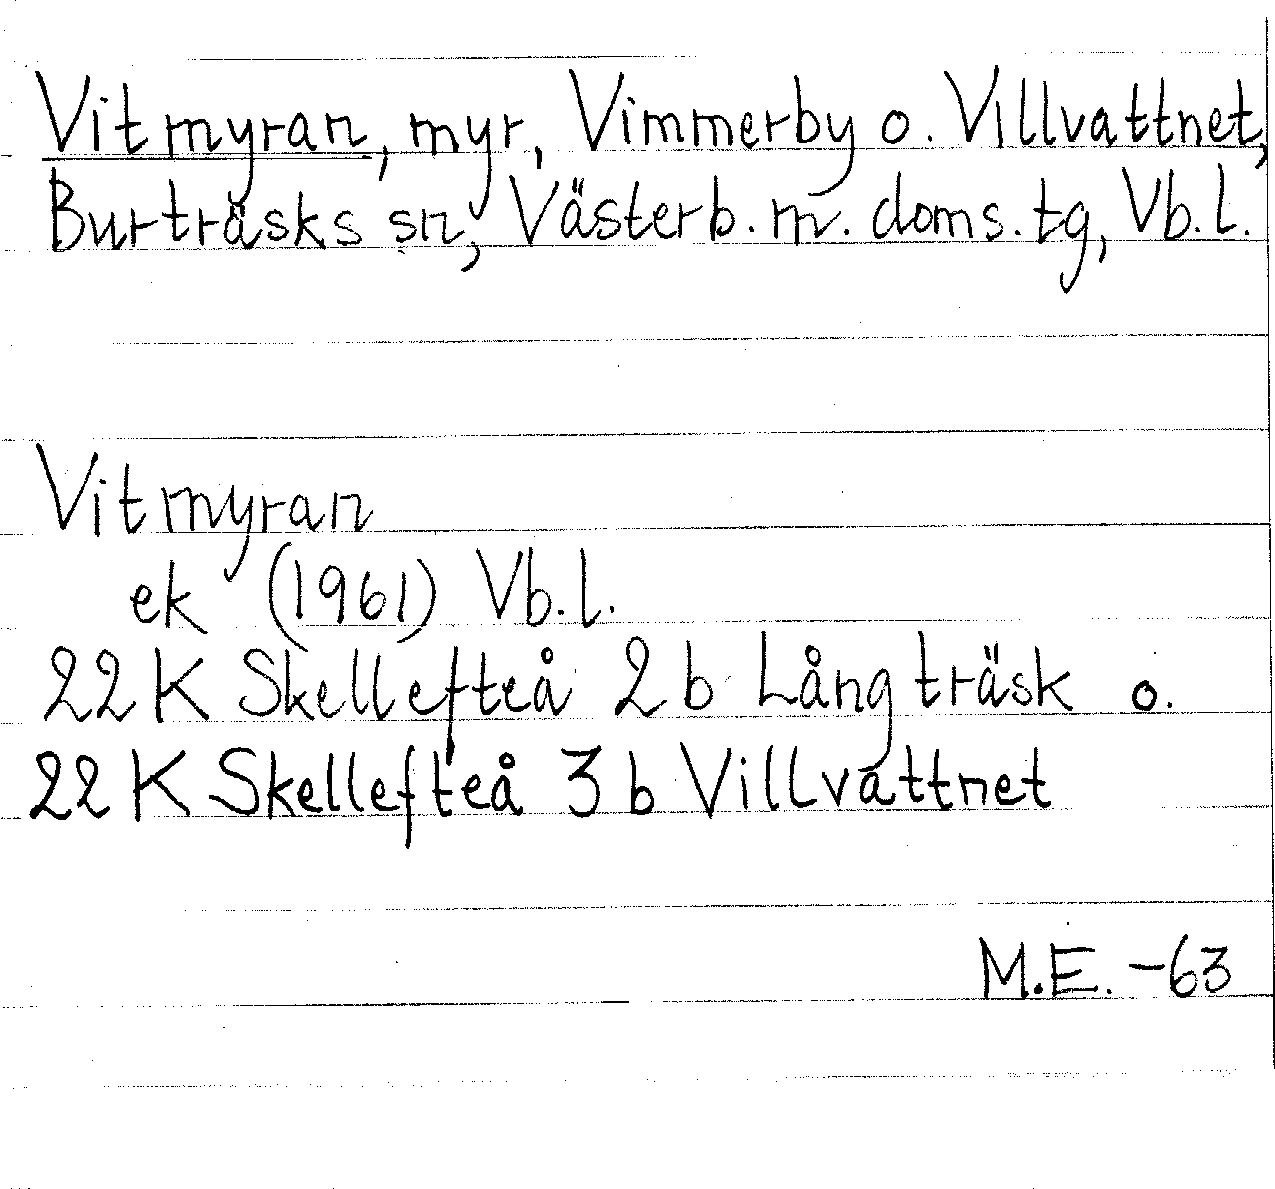 Vitmyran, myr, Vimmerby o. Villvattnet,
Burträsks sn, Västerb. m. doms. tg, Vb. l.
Vitmyran
ek (1961) Vb. l.
22 K Skellefteå 2 b Långträsk o.
22 K Skellefteå 3 b Villvattnet
M.E. -63